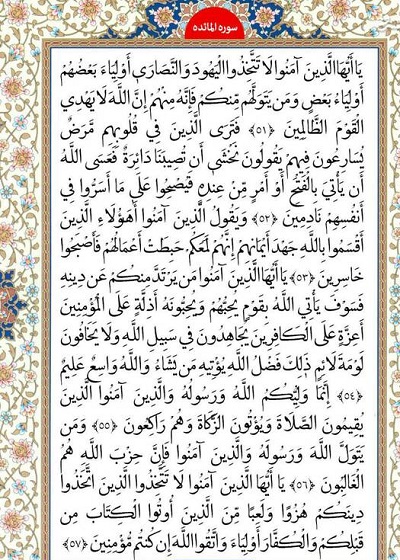 سوره المائده
يَا أَيُّهَا الَّذِينَ آمَنُوا لَا تَتَّخِذُوا الْيَهُودَ وَالنَّصَارَىٰ أَوْلِيَاءَ بَعْضُهُمْ
أَوْلِيَاءُ بَعْضٍ وَمَن يَتَوَلَّهُم مِّنكُمْ فَإِنَّهُ مِنْهُمْ إِنَّ اللَّهَ لَا يَهْدِي
الْقَوْمَ الظَّالِمِينَ ﴿٥١﴾ فَتَرَى الَّذِينَ فِي قُلُوبِهِم مَّرَضٌ
يُسَارِعُونَ فِيهِمْ يَقُولُونَ نَخْشَىٰ أَن تُصِيبَنَا دَائِرَةٌ فَعَسَى اللَّهُ
أَن يَأْتِيَ بِالْفَتْحِ أَوْ أَمْرٍ مِّنْ عِندِهِ فَيُصْبِحُوا عَلَىٰ مَا أَسَرُّوا فِي
أَنفُسِهِمْ نَادِمِينَ ﴿٥٢﴾ وَيَقُولُ الَّذِينَ آمَنُوا أَهَٰؤُلَاءِ الَّذِينَ
أَقْسَمُوا بِاللَّهِ جَهْدَ أَيْمَانِهِمْ إِنَّهُمْ لَمَعَكُمْ حَبِطَتْ أَعْمَالُهُمْ فَأَصْبَحُوا
خَاسِرِينَ ﴿٥٣﴾ يَا أَيُّهَا الَّذِينَ آمَنُوا مَن يَرْتَدَّ مِنكُمْ عَن دِينِهِ
فَسَوْفَ يَأْتِي اللَّهُ بِقَوْمٍ يُحِبُّهُمْ وَيُحِبُّونَهُ أَذِلَّةٍ عَلَى الْمُؤْمِنِينَ
أَعِزَّةٍ عَلَى الْكَافِرِينَ يُجَاهِدُونَ فِي سَبِيلِ اللَّهِ وَلَا يَخَافُونَ
لَوْمَةَ لَائِمٍ ذَٰلِكَ فَضْلُ اللَّهِ يُؤْتِيهِ مَن يَشَاءُ وَاللَّهُ وَاسِعٌ عَلِيمٌ
﴿٥٤﴾ إِنَّمَا وَلِيُّكُمُ اللَّهُ وَرَسُولُهُ وَالَّذِينَ آمَنُوا الَّذِينَ
يُقِيمُونَ الصَّلَاةَ وَيُؤْتُونَ الزَّكَاةَ وَهُمْ رَاكِعُونَ ﴿٥٥﴾ وَمَن
يَتَوَلَّ اللَّهَ وَرَسُولَهُ وَالَّذِينَ آمَنُوا فَإِنَّ حِزْبَ اللَّهِ هُمُ
الْغَالِبُونَ ﴿٥٦﴾ يَا أَيُّهَا الَّذِينَ آمَنُوا لَا تَتَّخِذُوا الَّذِينَ اتَّخَذُوا
دِينَكُمْ هُزُوًا وَلَعِبًا مِّنَ الَّذِينَ أُوتُوا الْكِتَابَ مِن
قَبْلِكُمْ وَالْكُفَّارَ أَوْلِيَاءَ وَاتَّقُوا اللَّهَ إِن كُنتُم مُّؤْمِنِينَ ﴿٥٧﴾